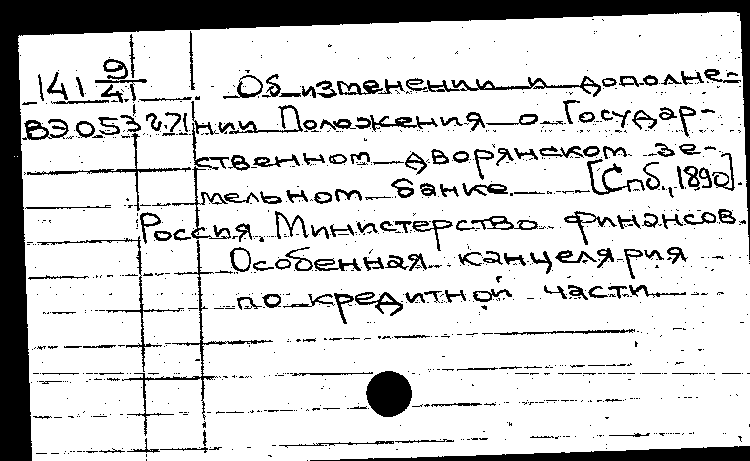 141 9/41 Об изменении и дополне-
ВЭ 053 нии Положения о Государ-
ственном дворянском зе-
мельном банке. [Спб., 1890].
Россия. Министерство финансов.
Особенная канцелярия
по кредитной части.